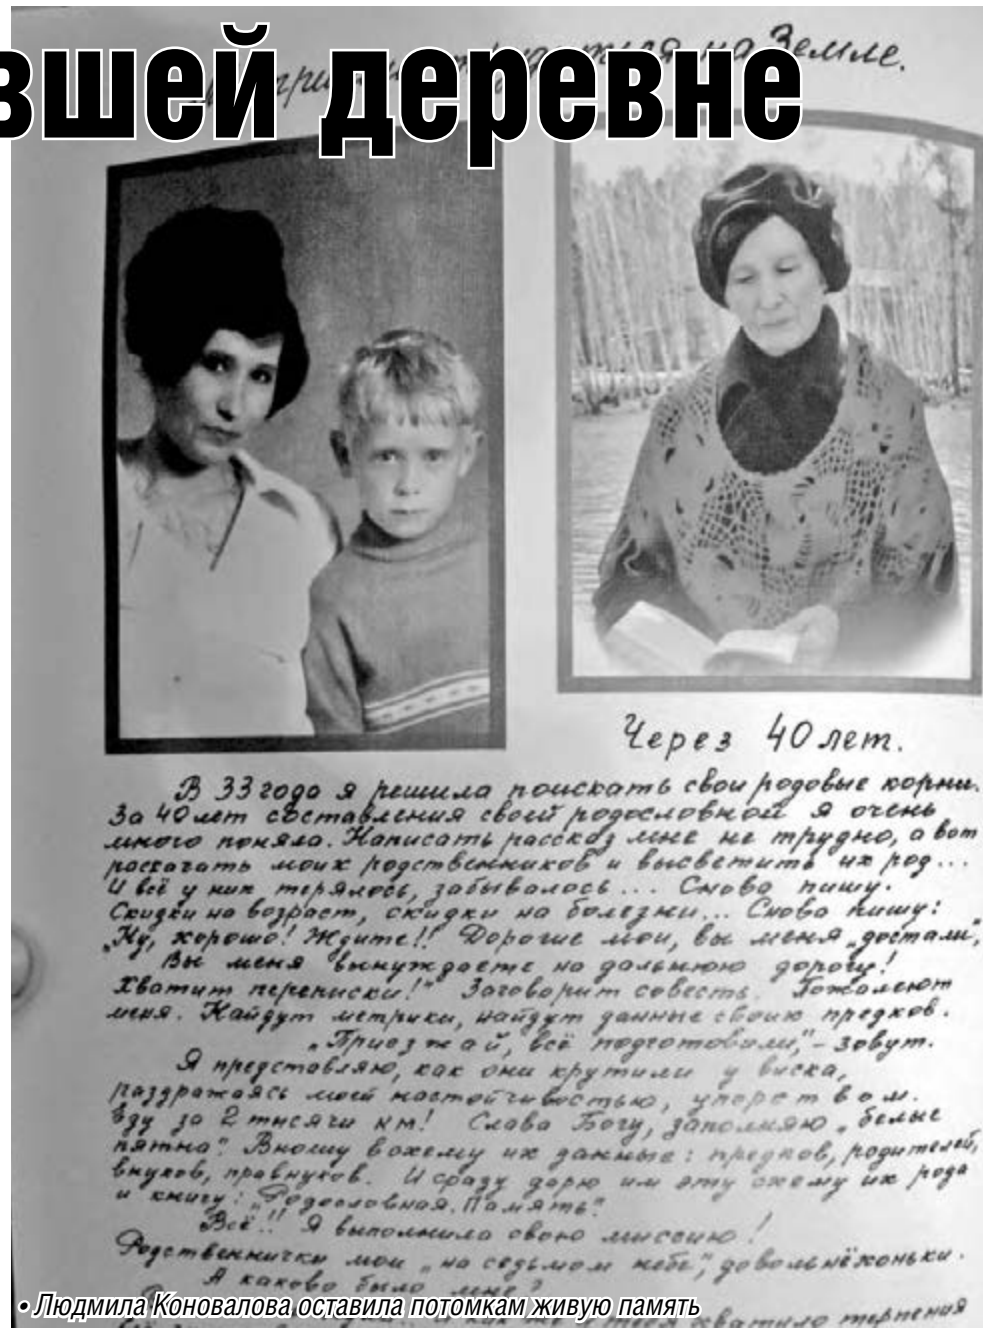 на Земле.
вшей деревне
Через 40 лет.
В 33 года я решила поискать свои родовые корни.
За 40 лет составления своей родословной я очень
много поняла. Написать рассказ мне не трудно, а вот
раскачать моих родственников и высветить их род...
И всё у них терялось, забывалось... Снова пишу.
Скидки на возраст, скидки на болезни... Снова пишу:
„Ну, хорошо! Ждите!! Дорогие мои, вы меня „достали,"
Вы меня вынуждаете на дальнюю дорогу!
Хватит переписки!" Заговорит совесть. Пожалеют
меня. Найдут метрики, найдут данные своих предков.
„Приезжай, всё подготовили," – зовут.
Я представляю, как они крутили у виска,
раздражаясь моей настойчивостью, упорством.
Еду за 2 тысячи км! Слава Богу, заполняю „белые
пятна". Вношу в схему их данные: предков, родителей,
внуков, правнуков. И сразу дарю им эту схему их рода
и книгу: „Родословная. Память".
Всё!! Я выполнила свою миссию!
Родственнички мои „на седьмом небе", довольнёхоньки.
А каково было мне?
• Людмила Коновалова оставила потомкам живую память
хватило терпения